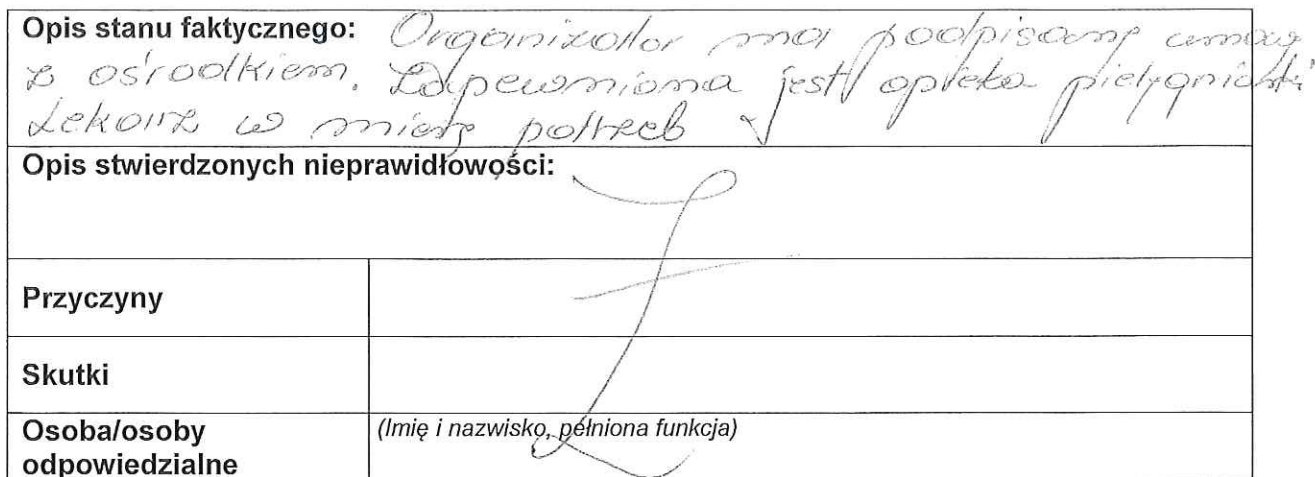 Opis stanu faktycznego: Organizator ma podpisaną umowę
z ośrodkiem. Zapewniona jest opieka pielęgniarki
Lekarz w miarę potrzeb
Opis stwierdzonych nieprawidłowości:
Przyczyny
Skutki
Osoba/osoby odpowiedzialne
(Imię i nazwisko, pełniona funkcja)